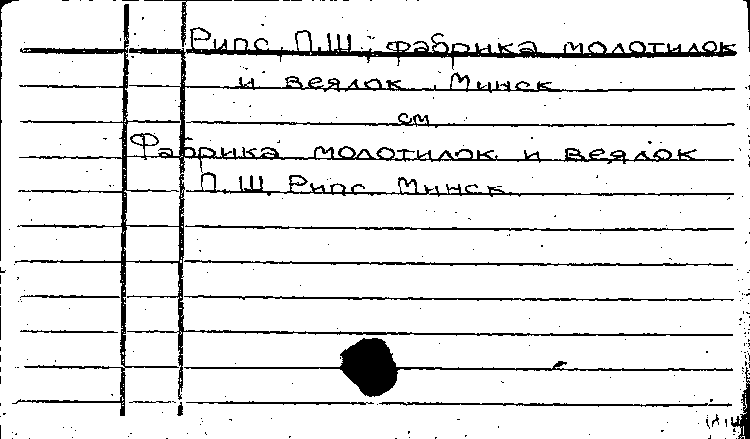 Рипс, П.Ш., фабрика молотилок
и веялок. Минск
см.
Фабрика молотилок и веялок
П.Ш. Рипс. Минск.